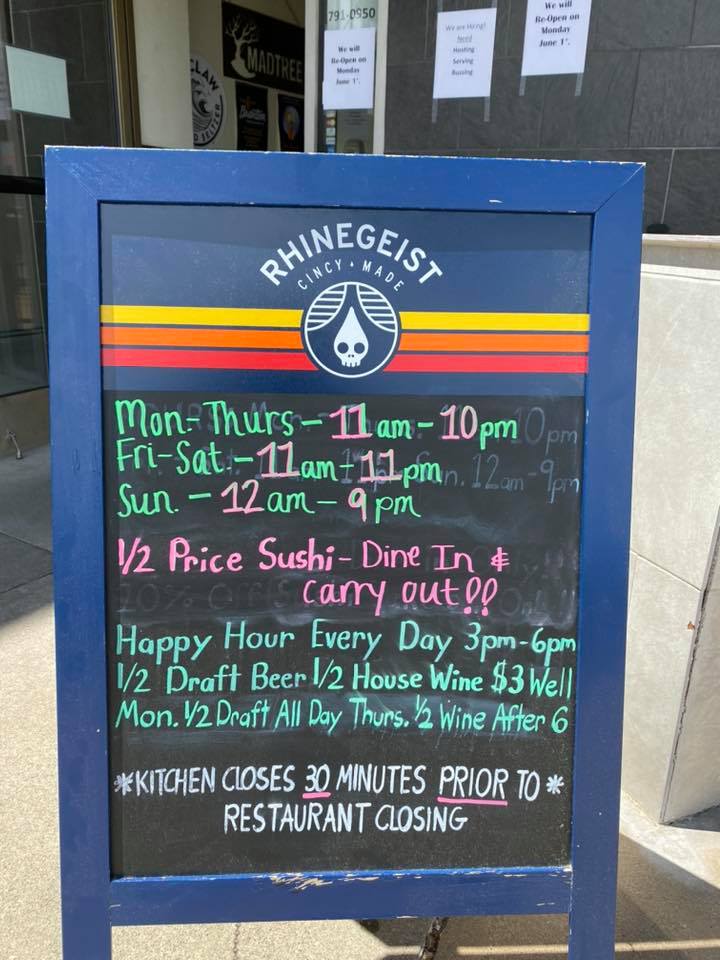 791-0950
We will
Re-Open on
Monday
June 1".
We are Hiring!
Need
Hosting
Serving
Bussing
We will
Re-Open on
Monday
June 1".
CLAW
MADTREE
RHINEGEIST
CINCY • MADE
Mon-Thurs - 11am - 10pm
Fri-Sat. - 11am - 11pm
Sun. - 12am - 9pm
1/2 Price Sushi - Dine In &
carry out!!
Happy Hour Every Day 3pm-6pm
1/2 Draft Beer 1/2 House Wine $3 Well
Mon. 1/2 Draft All Day Thurs. 1/2 Wine After 6
*KITCHEN CLOSES 30 MINUTES PRIOR TO *
RESTAURANT CLOSING